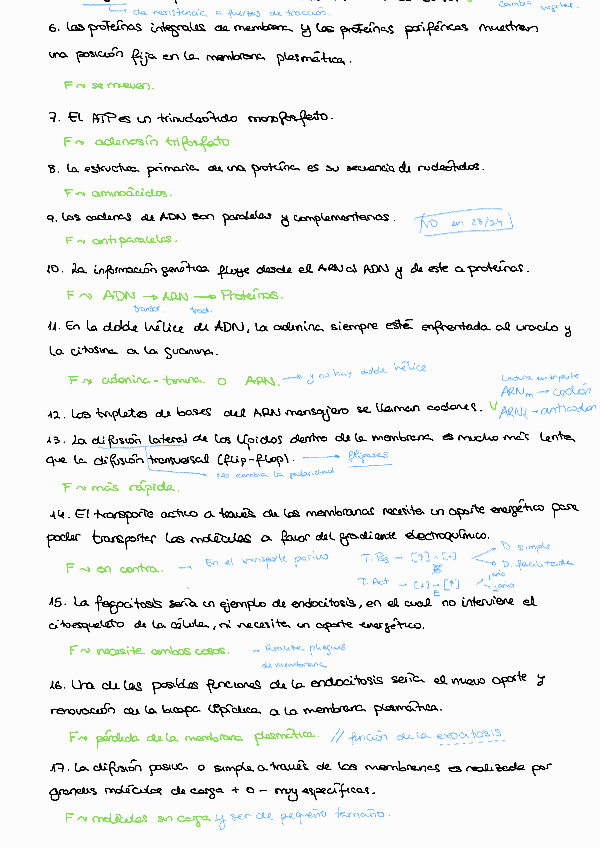 de resistencia a fuertas de tracción.
cambia
6. Las proteínas integrales de membrana y las proteínas periféricas muestran
una posición fija en la membrana plasmática.
F ~ se mueven.
7. El ATP es un trinucleótido monofosfato.
F ~ adenosín trifosfato
8. La estructura primaria de una proteína es su secuencia de nucleótidos.
F ~ aminoácidos.
9. Las cadenas de ADN son paralelas y complementarias.
NO en 23/24
F ~ antiparalelas.
10. La información genética fluye desde el ARN al ADN y de este a proteínas.
F ~ ADN → ARN → Proteínas.
transcr. trad.
11. En la doble hélice de ADN, la adenina siempre está enfrentada al uracilo y
la citosina a la guanina.
F ~ adenina - timina o ARN. → y no hay doble hélice.
ARNm → codón
12. Los tripletes de bases del ARN mensajero se llaman codones. V
ARNt → anticodón
13. La difusión lateral de los lípidos dentro de la membrana es mucho más lenta
que la difusión transversal (flip-flop). → flipasas
no cambia la polaridad
F ~ más rápida.
14. El transporte activo a través de las membranas necesita un aporte energético para
poder transportar las moléculas a favor del gradiente electroquímico.
F ~ en contra. → En el transporte pasivo
T. Pas → [↑] → [↓]
D. simple
D. facilitada
T. Act → [↓] → [↑]
E
1ario
2ario
15. La fagocitosis sería un ejemplo de endocitosis, en el cual no interviene el
citoesqueleto de la célula, ni necesita un aporte energético.
F ~ necesita ambas cosas. → Realiza pliegues
de membrana
16. Una de las posibles funciones de la endocitosis sería el nuevo aporte y
renovación de la bicapa lipídica a la membrana plasmática.
F ~ pérdida de la membrana plasmática. // función de la exocitosis
17. La difusión pasiva o simple a través de las membranas es realizada por
grandes moléculas de carga + o - muy específicas.
F ~ moléculas sin carga y ser de pequeño tamaño.